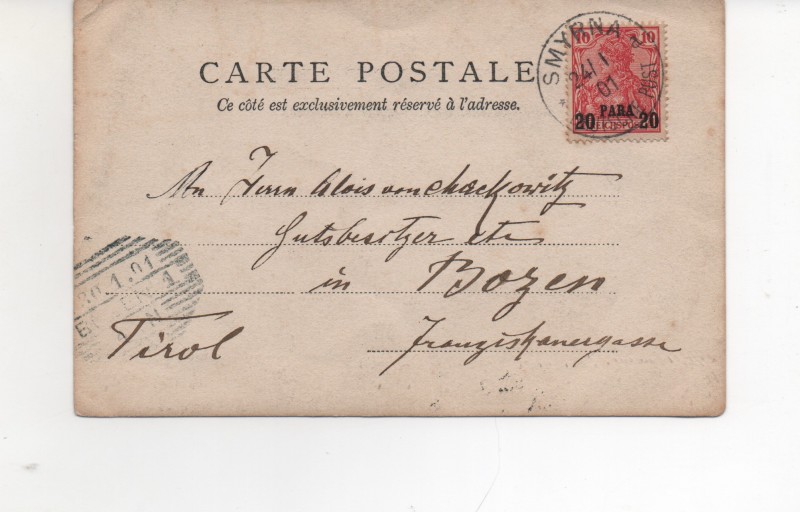 CARTE POSTALE
Ce côté est exclusivement réservé à l'adresse.
SMYRNA
24/1
01
POST
10 10
PARA
20 20
An Herrn Alois von Mackowitz
Gutsbesitzer etc
in Bozen
Tirol
Franziskanergasse
30.1.01